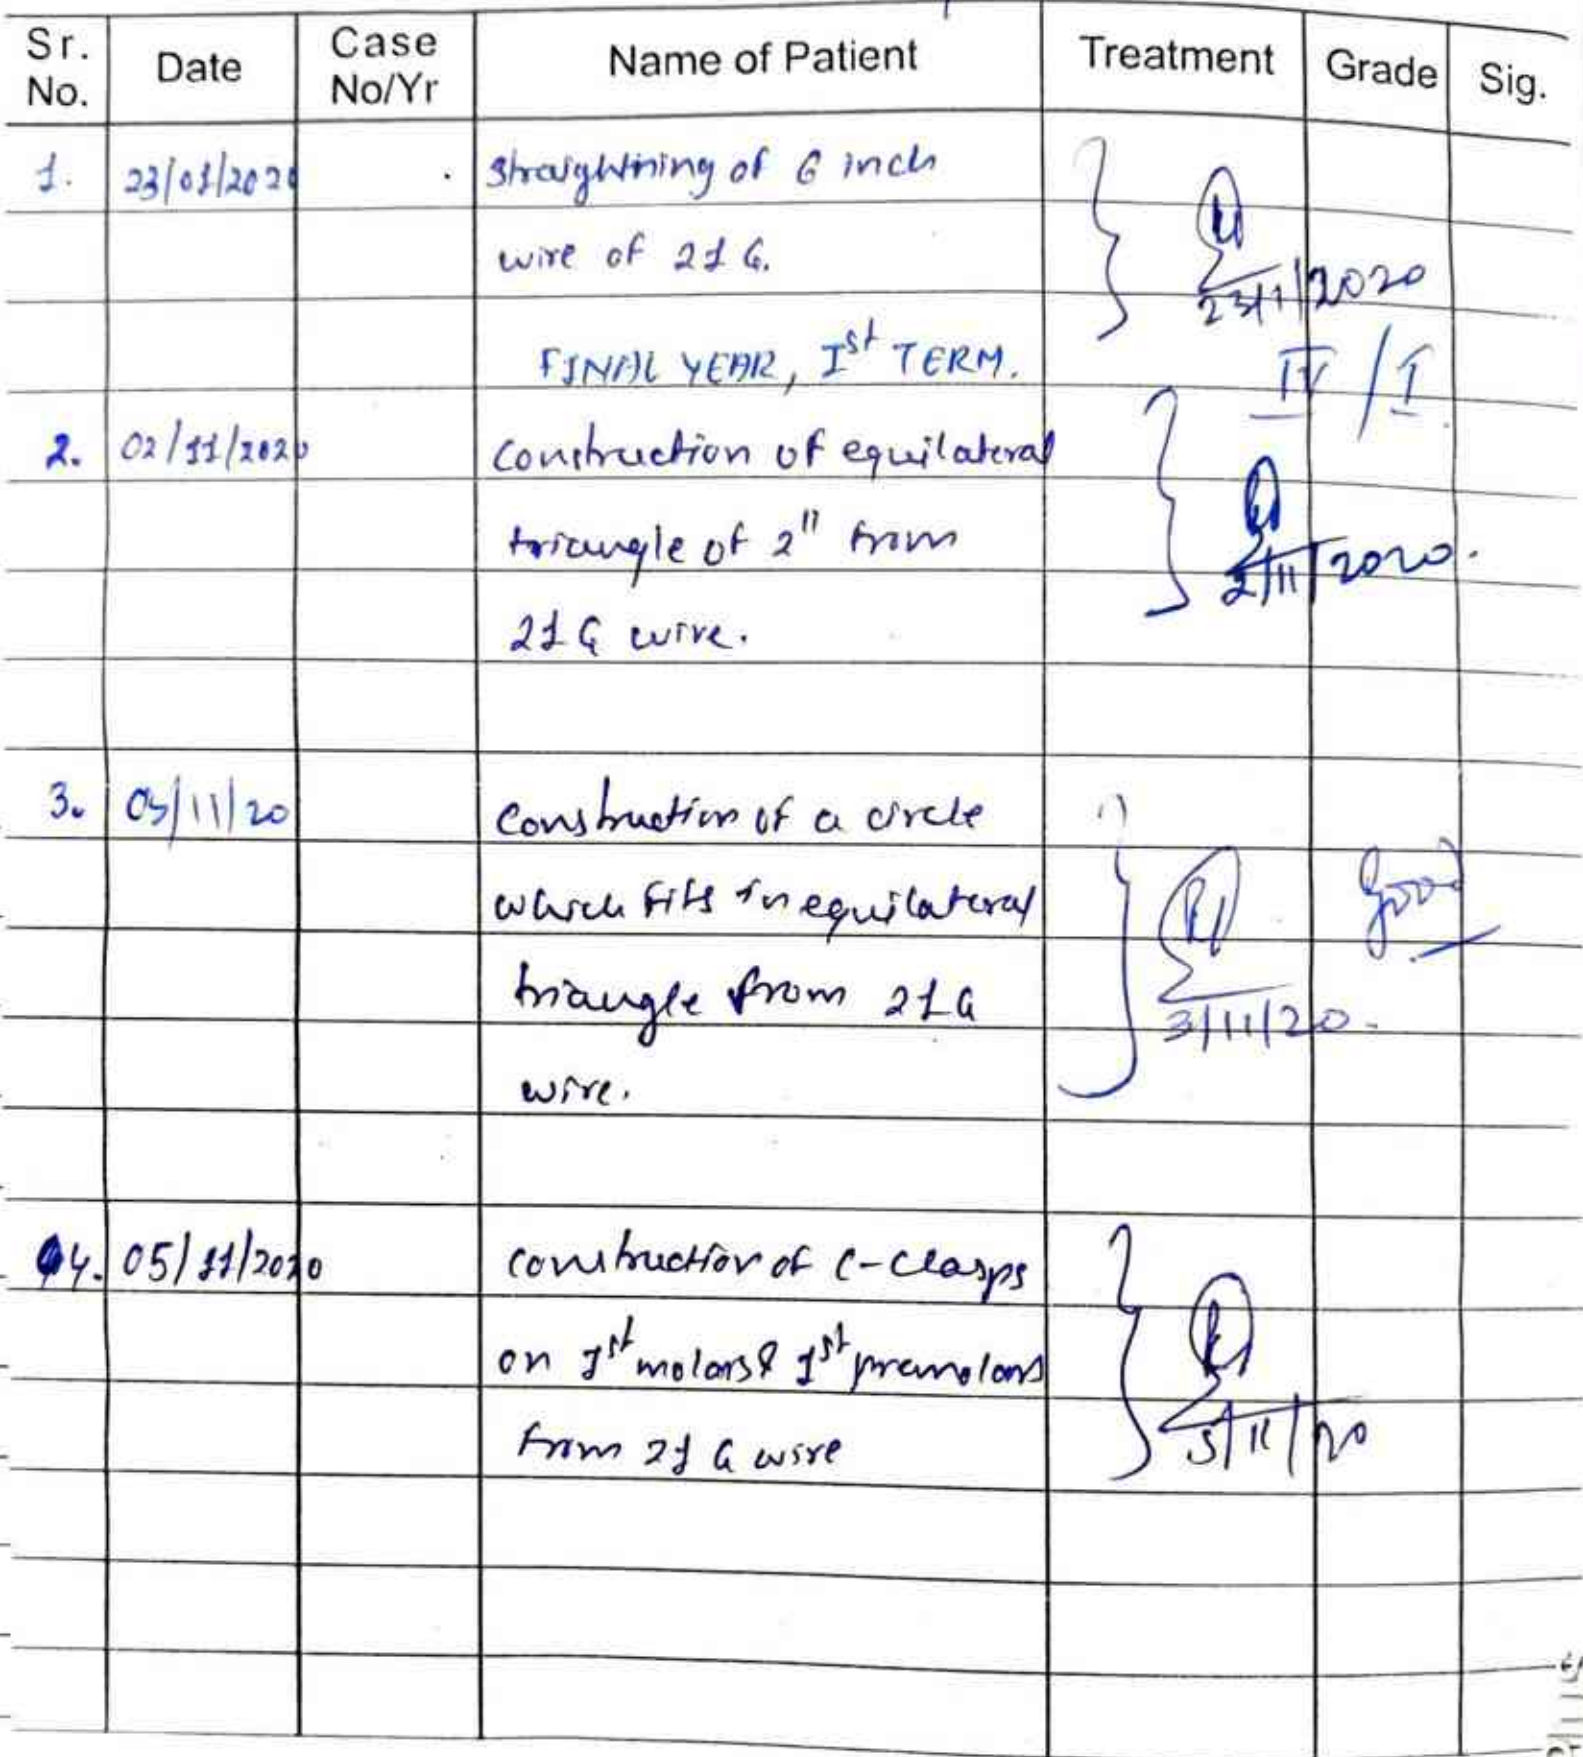 Sr. No. Date Case No/Yr Name of Patient Treatment Grade Sig.
1. 23/01/2020 straightning of 6 inch
wire of 21 G.
23/1/2020
FINAL YEAR, Ist TERM. IV / I
2. 02/11/2020 construction of equilateral
triangle of 2" from
2/11/2020.
21 G wire.
3. 03/11/20 Construction of a circle
which fits in equilateral Good
triangle from 21 G
3/11/20.
wire.
4. 05/11/2020 construction of C-Clasps
on 1st molars & 1st premolars
from 21 G wire 5/11/20